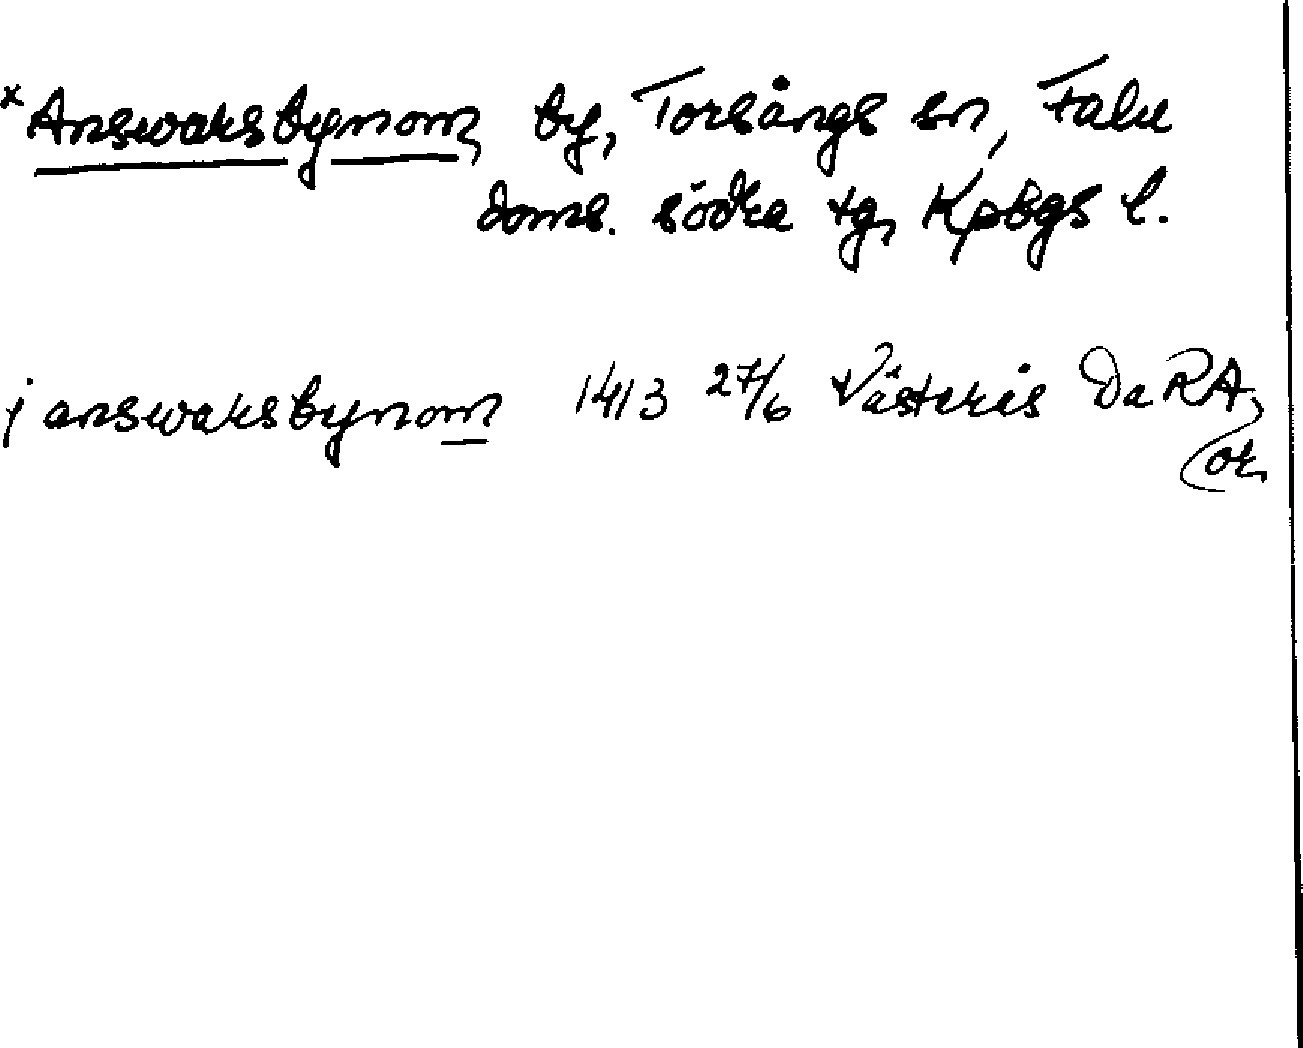 *Answaksbynom, by, Torsångs sn, Falu
doms. södra tg, Kpbgs l.
j answaksbynom 1413 27/6 Västerås Da RA,
or.